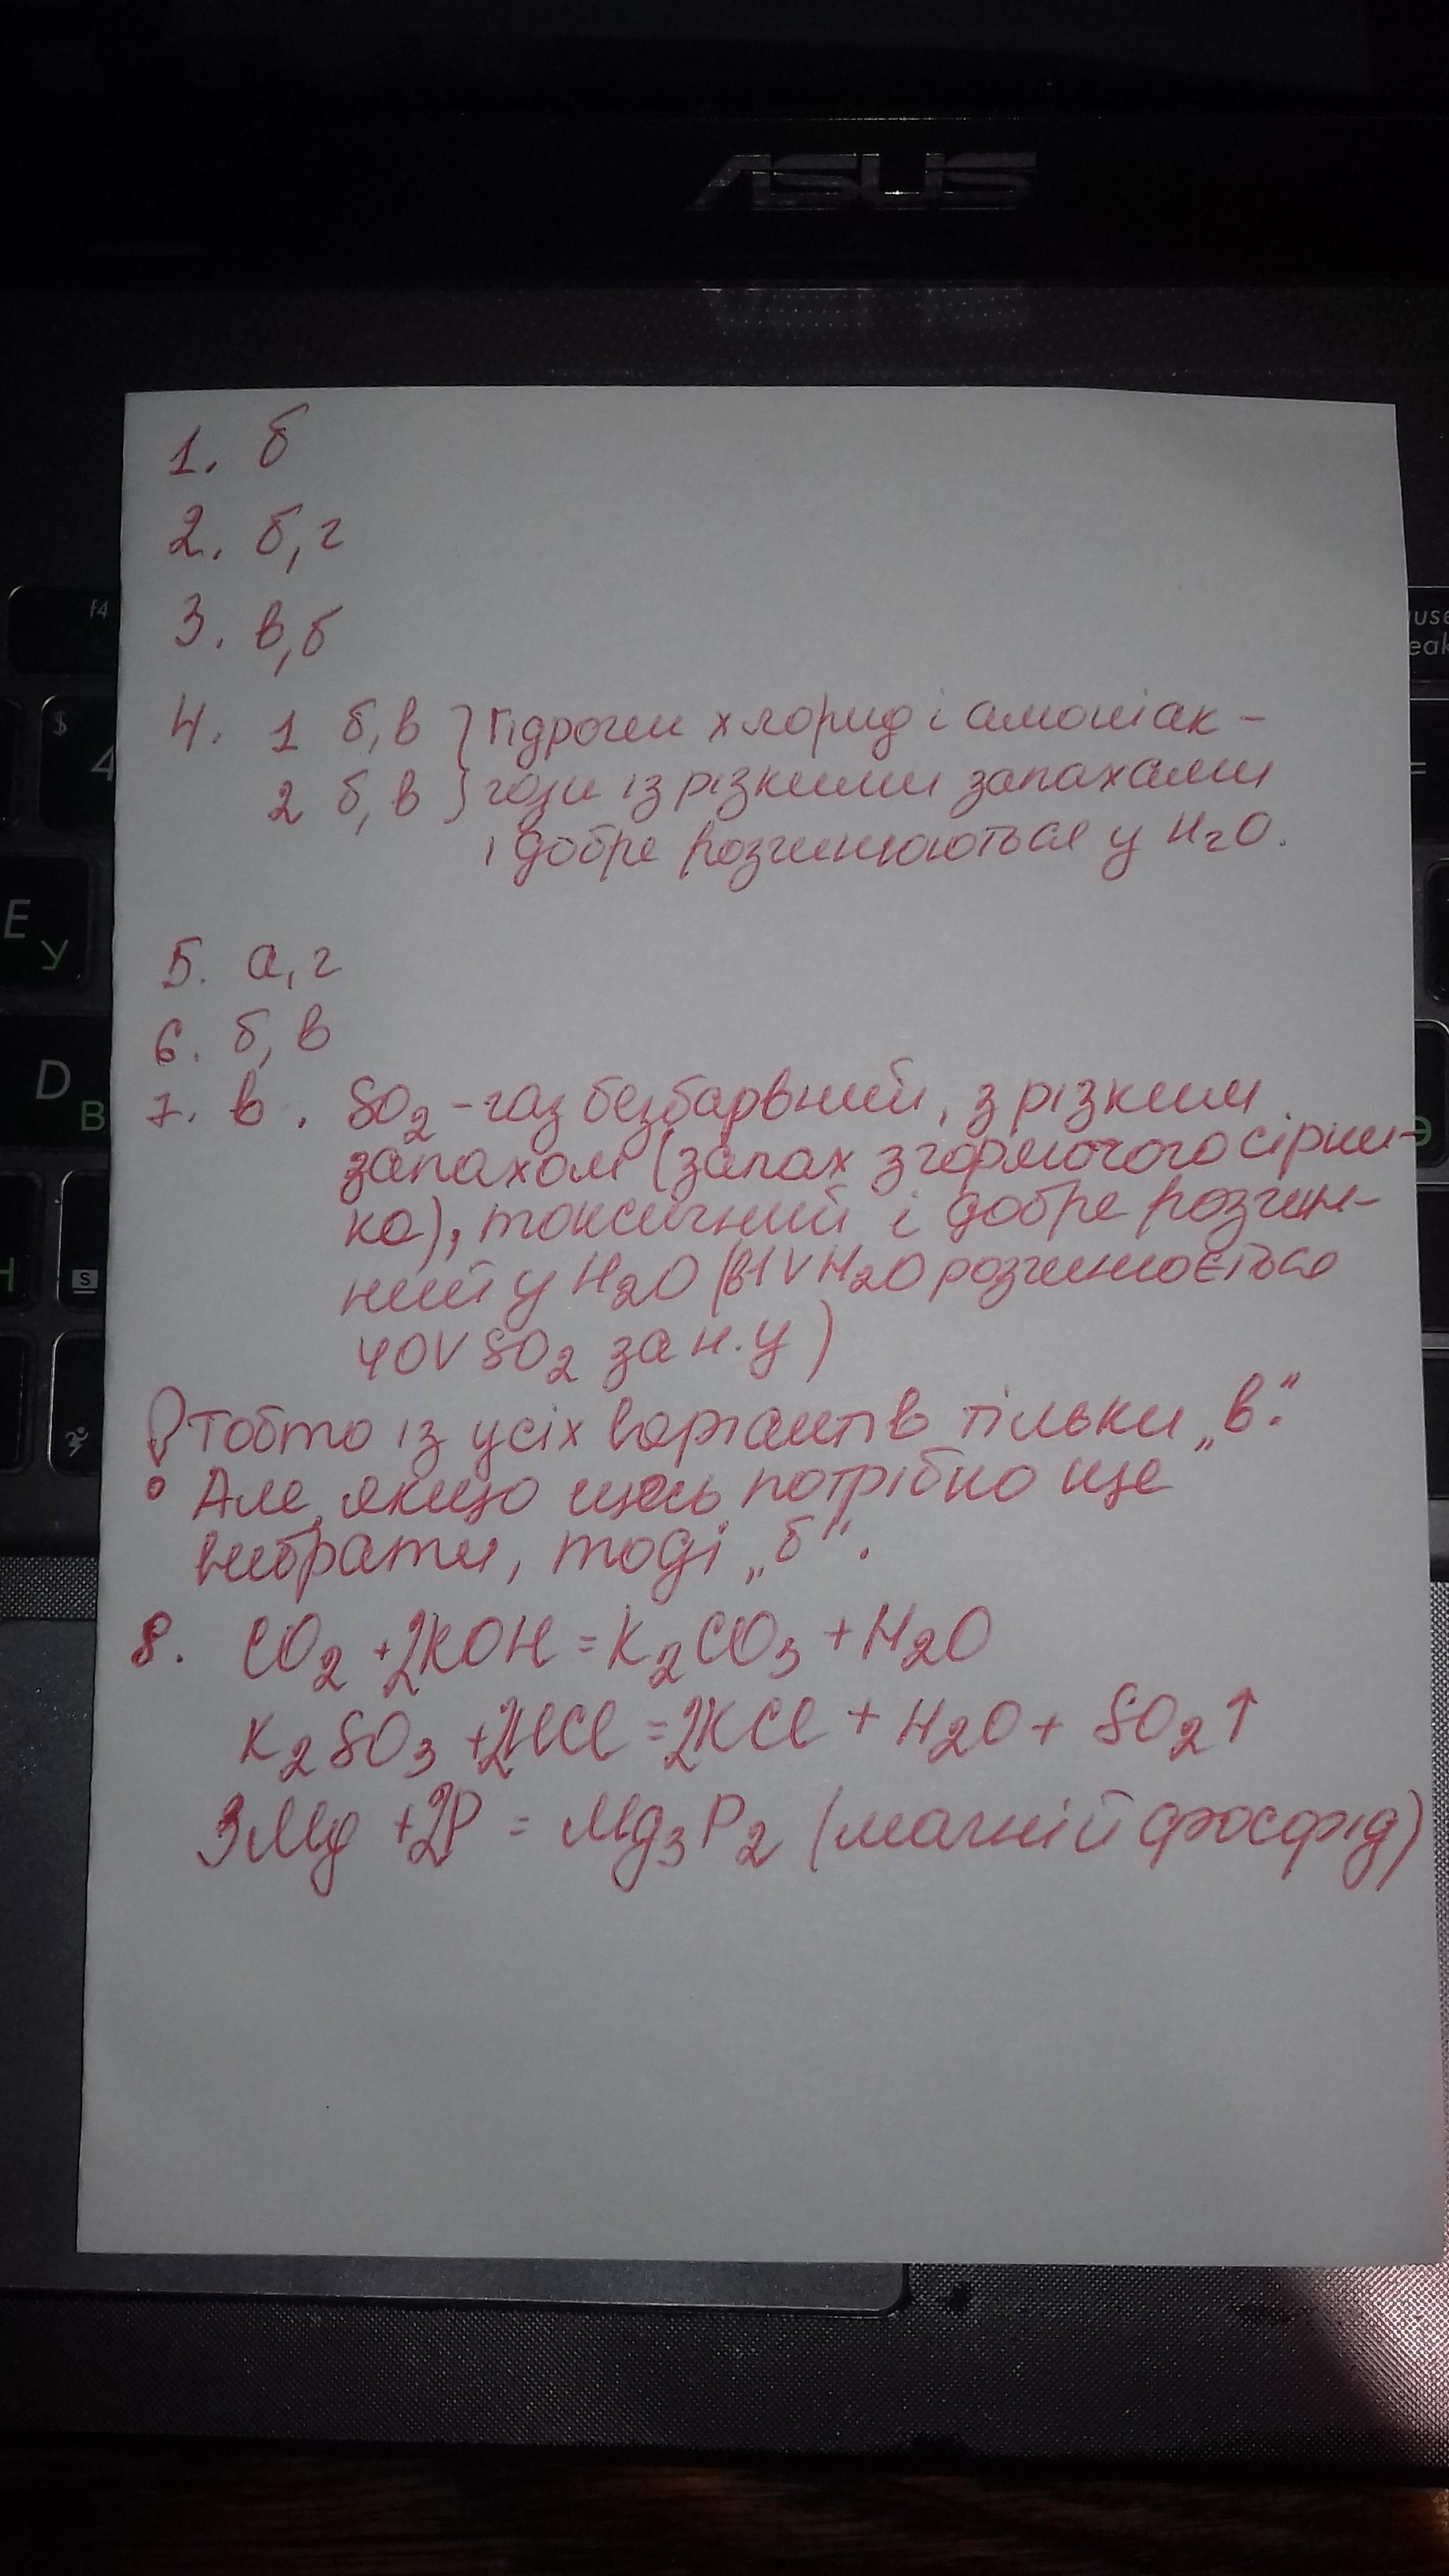 ASUS
1. б
2. б, г
3. в, б
f4
use
eak
4. 1 б, в } Гідроген хлорид і амоніак –
2 б, в } гази із різкими запахами
і добре розчиняються у H₂O.
$
4
=
E
У
5. а, г
6. б, в
D
В
7. в. SO₂ – газ безбарвний, з різким
запахом (запах згорілого сірни-
ка), токсичний і добре розчин-
ний у H₂O (в 1V H₂O розчиняється
40V SO₂ за н.у)
Э
S
! Тобто із усіх варіантів тільки „в“.
Але, якщо щось потрібно ще
вибрати, тоді „б“.
8. CO₂ + 2KOH = K₂CO₃ + H₂O
K₂SO₃ + 2HCl = 2KCl + H₂O + SO₂↑
3Mg + 2P = Mg₃P₂ (магній фосфід)